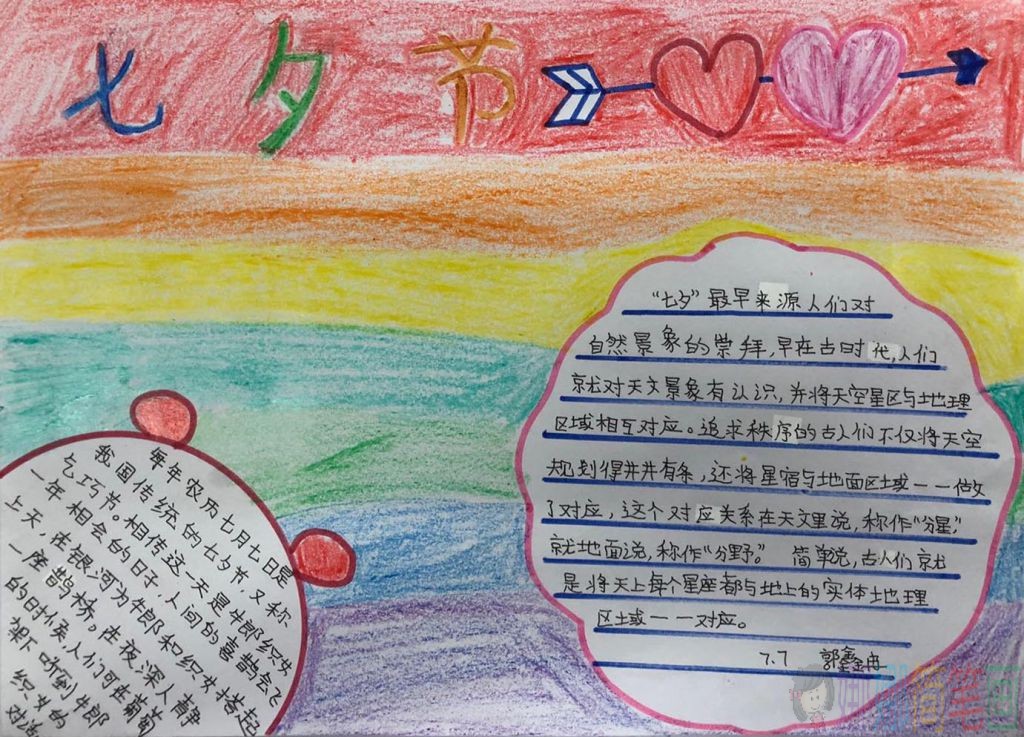 七夕节
“七夕”最早来源人们对
自然景象的崇拜,早在古时代,人们
就对天文景象有认识,并将天空星区与地理
区域相互对应。追求秩序的古人们不仅将天空
规划得井井有条,还将星宿与地面区域一一做
了对应,这个对应关系在天文里说,称作“分星”,
就地面说,称作“分野”。 简单说,古人们就
是将天上每个星座都与地上的实体地理
区域一一对应。
7.7 郭鑫冉
每年农历七月七日是
我国传统的七夕节,又称
乞巧节。相传这一天是牛郎织女
一年相会的日子,人间的喜鹊会飞
上天,在银河为牛郎和织女搭起
一座鹊桥。在夜深人静
的时候,人们可在葡萄
架下听到牛郎
织女的
对话